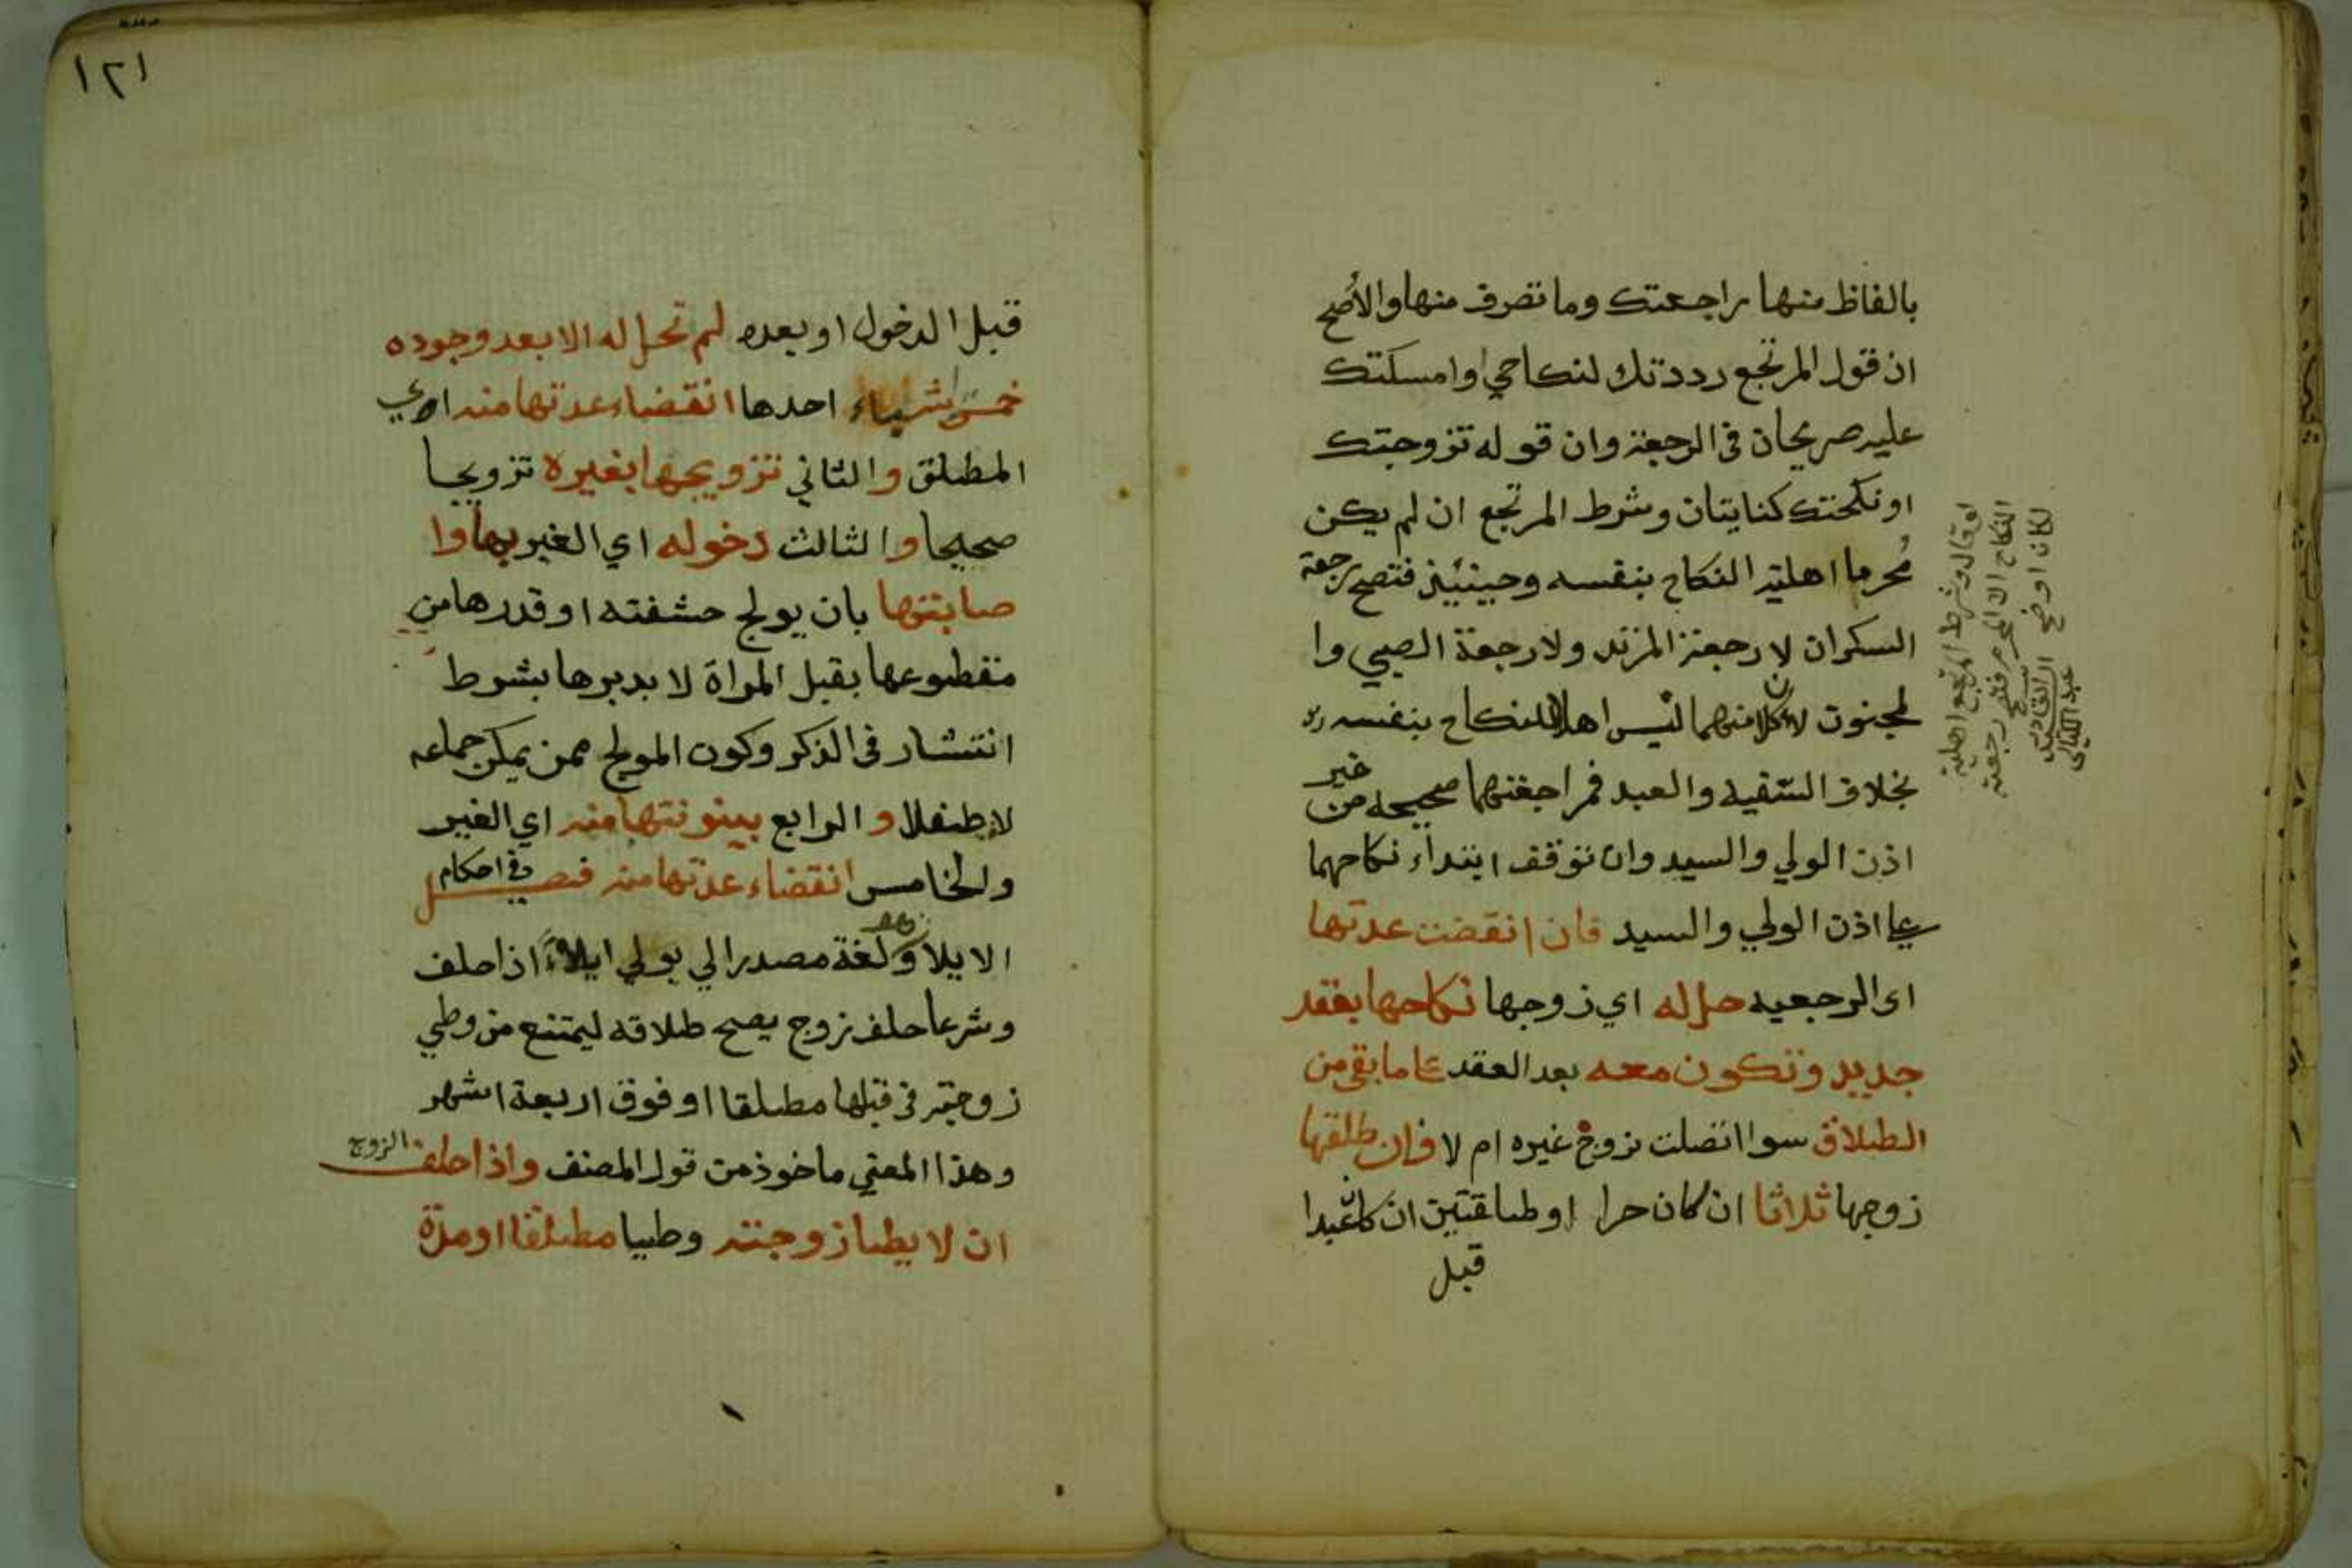 بالفاظ منها راجعتك وما تصرف منها والأصح
ان قول المرتجع رددتك لنكاحي وامسكتك
عليه صريحان في الرجعة وان قوله تزوجتك
او نكحتك كنايتان وشرط المرتجع ان لم يكن
مُحرما اهلية النكاح بنفسه وحينئيذ فتصح رجعة
السكران لا رجعة المرتد ولا رجعة الصبي وا
لمجنون لان كلا منهما ليس اهلا للنكاح بنفسه
بخلاف السفيه والعبد فمراجعتهما صحيحه من غير
اذن الولي والسيد وان توقف ابتداء نكاحهما
علي اذن الولي والسيد فان انقضت عدتها
اي الرجعيه حل له اي زوجها نكاحها بعقد
جديد وتكون معه بعد العقد علي ما بقي من
الطلاق سوا اتصلت بزوج غيره ام لا فان طلقها
زوجها ثلاثا ان كان حرا او طلقتين ان كان عبدا
قبل
او قال وشرط المرتجع اهلية
النكاح الا المحرم فتصح رجعته
لكان اوضح
١٢١
قبل الدخول او بعده لم تحل له الا بعد وجوده
خمس اشياء احدها انقضاء عدتها منه اي
المطلق والثاني تزويجها بغيره تزويجا
صحيحا والثالث دخوله اي الغير بها وا
صابتها بان يولج حشفته او قدرها من
مقطوعها بقبل المراة لا بدبرها بشرط
انتشار في الذكر وكون المولج ممن يمكن جماعه
لا طفلا والرابع بينونتها منه اي الغير
والخامس انقضاء عدتها منه فصل في احكام
الايلا وهو لغة مصدر الي يولي ايلاءً اذا حلف
وشرعا حلف زوج يصح طلاقه ليمتنع من وطي
زوجته في قبلها مطلقا او فوق اربعة اشهر
وهذا المعني ماخوذ من قول المصنف واذا حلف الزوج
ان لا يطا زوجته وطيا مطلقا او مدة